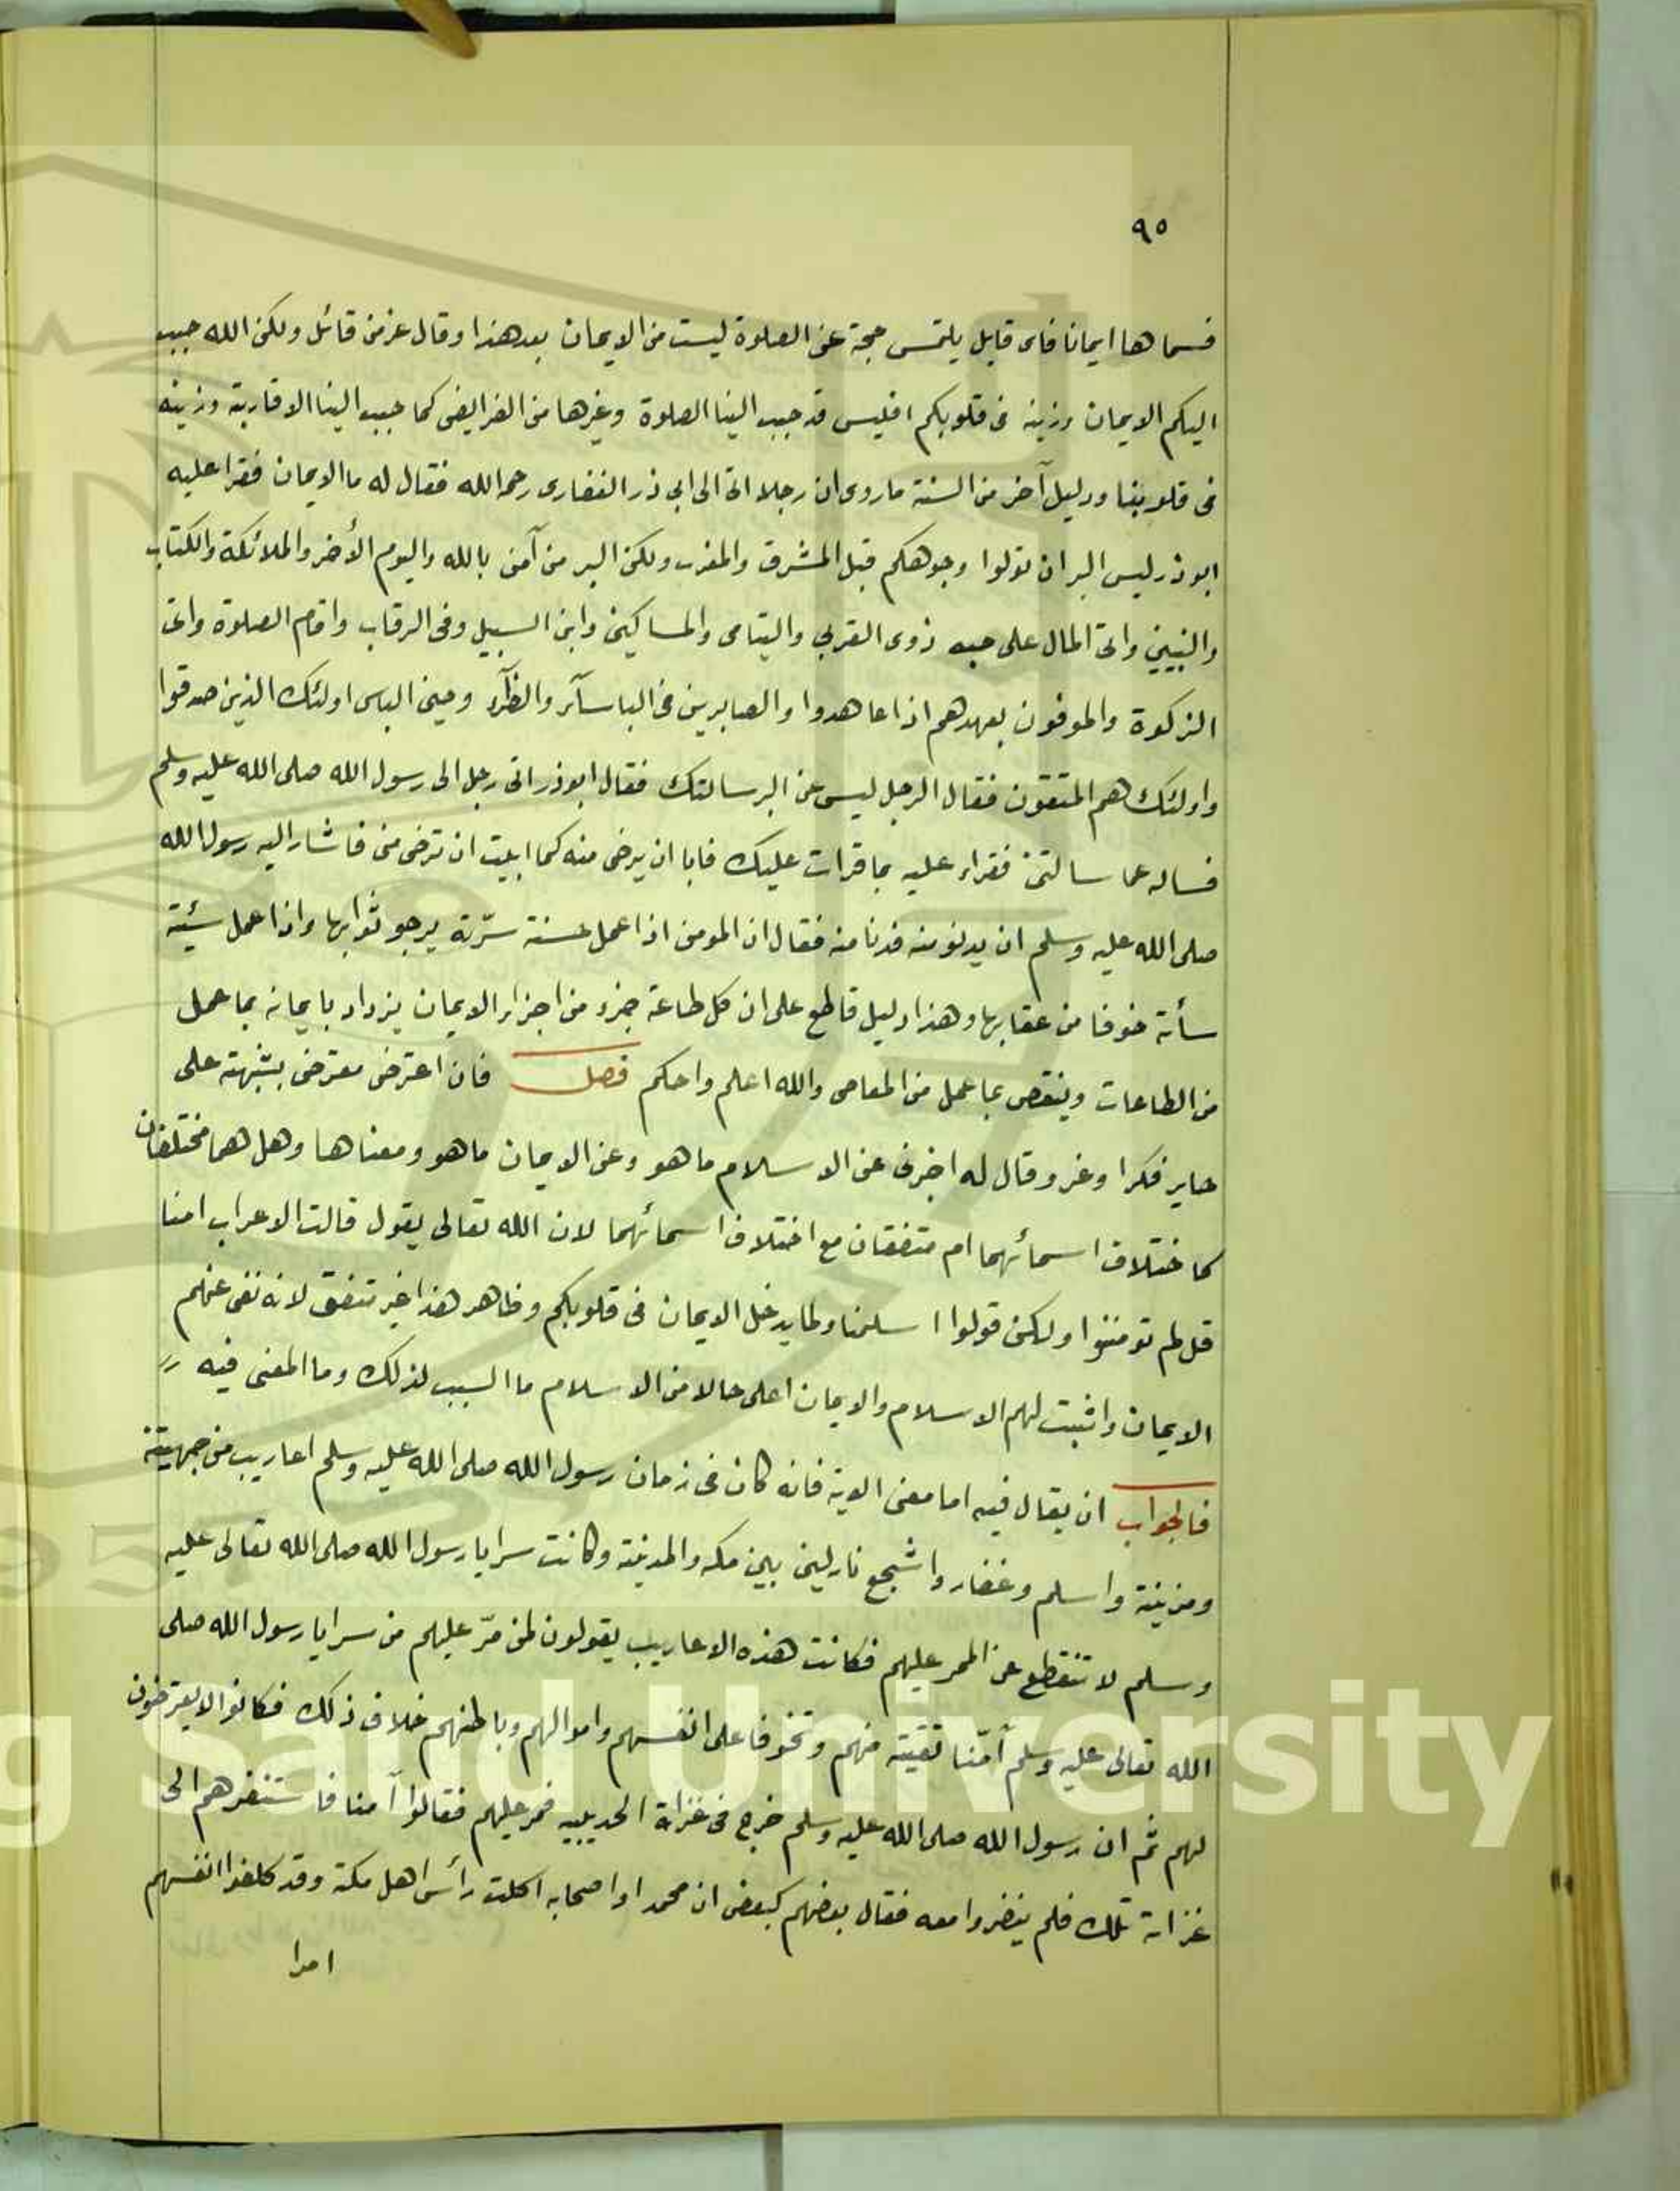 ٩٥
فسماها ايمانا فاى قايل يلتمس حجة عن الصلوة ليست من الايمان بعد هذا وقال عز من قائل ولكن الله حبب
اليكم الايمان وزينه فى قلوبكم افليس قد حبب الينا الصلوة وغيرها من الفرايض كما حبب الينا الاقاربة وزينه
فى قلوبنا ودليل آخر من السنة ماروى ان رجلا اتى الى ابى ذر الغفارى رحمه الله فقال له ما الايمان فقرا عليه
ابوذر ليس البر ان تولوا وجوهكم قبل المشرق والمغرب ولكن البر من آمن بالله واليوم الأخر والملائكة والكتاب
والنبيين واتى المال على حبه ذوى القربى واليتامى والمساكين وابن السبيل وفى الرقاب واقام الصلوة واتى
الزكوة والموفون بعهدهم اذا عاهدوا والصابرين فى الباسآء والضرآء وحين الباس اولئك الذين صدقوا
واولئك هم المتقون فقال الرجل ليس عن البر سالتك فقال ابوذر اتى رجل الى رسول الله صلى الله عليه وسلم
فساله عما سالتنى فقراء عليه بما قرات عليك فابا ان يرضى منه كما ابيت ان ترضى منى فاشار اليه رسول الله
صلى الله عليه وسلم ان يدنو منه فدنا منه فقال ان المومن اذا عمل حسنة سرّته يرجو ثوابها واذا عمل سيئة
سأته خوفا من عقابها وهذا دليل قاطع على ان كل طاعة جزء من اجزاء الايمان يزداد بايمانه بما عمل
من الطاعات وينقص بما عمل من المعاصى والله اعلم واحكم فصل فان اعترض معترض بشبهته على
حاير فكرا وغر وقال له اخبرنى عن الاسلام ما هو وعن الايمان ما هو ومعناها وهل هما مختلفان
كاختلاف اسمائهما ام متفقان مع اختلاف اسمائهما لان الله تعالى يقول قالت الاعراب امنا
قل لم تومنوا ولكن قولوا اسلمنا ولما يدخل الايمان فى قلوبكم وظاهر هذا غير متفق لانه نفى عنهم
الايمان واثبت لهم الاسلام والايمان اعلى حالا من الاسلام ما السبب لذلك وما المعنى فيه
فالجواب ان يقال فيه اما معنى الاية فانه كان فى زمان رسول الله صلى الله عليه وسلم اعاريب من جهينة
ومزينة واسلم وغفار واشجع نازلين بين مكه والمدينة وكانت سرايا رسول الله صلى الله تعالى عليه
وسلم لا تنقطع عن الممر عليهم فكانت هذه الاعاريب يقولون لمن مرّ عليهم من سرايا رسول الله صلى
الله تعالى عليه وسلم آمنّا تقيّة منهم وتخوفا على انفسهم واموالهم وباطنهم خلاف ذلك فكانوا لا يعترضون
لهم ثم ان رسول الله صلى الله عليه وسلم خرج فى غزاة الحديبيه فمر عليهم فقالوا آمنا فاستنفرهم الى
غزاته تلك فلم ينفروا معه فقال بعضهم لبعض ان محمدا واصحابه اكلت رأس اهل مكة وقد كلفوا انفسهم
امرا